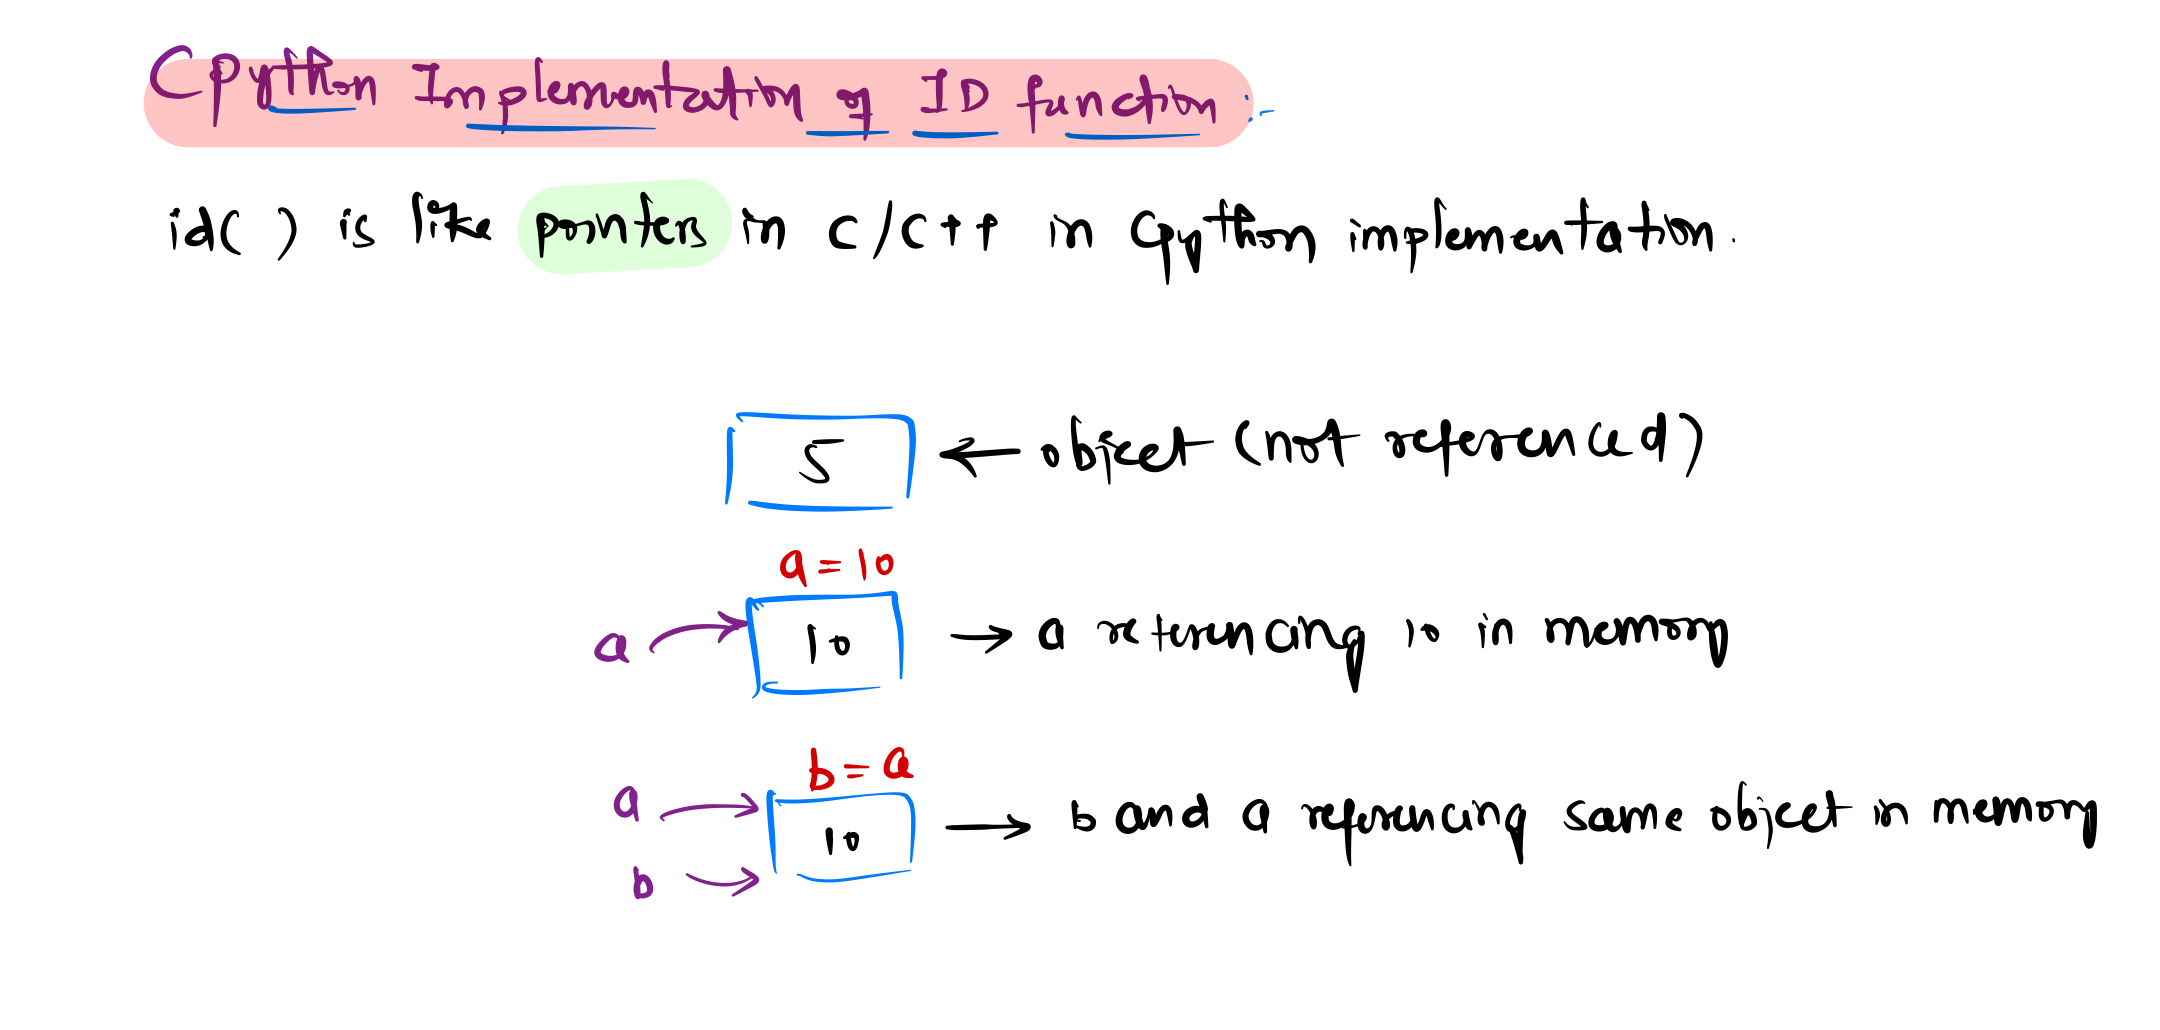 CPython Implementation of ID function :-
id( ) is like pointers in C/C++ in Cpython implementation.
5 ← object (not referenced)
a = 10
a 10 → a referencing 10 in memory
b = a
a
10 → b and a referencing same object in memory
b